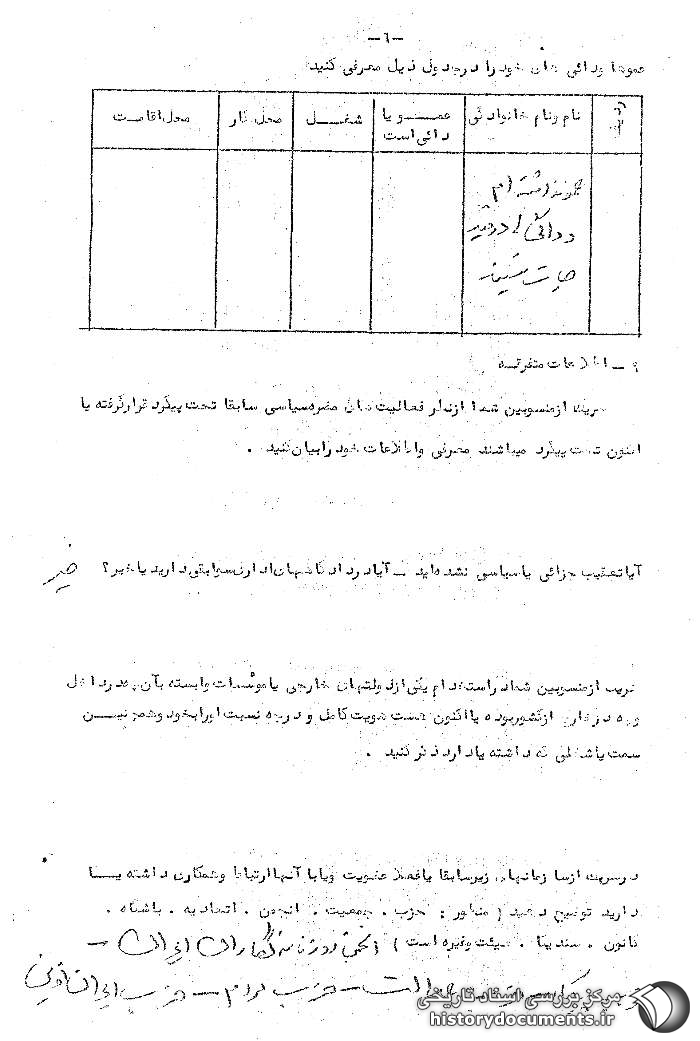 -٦-
عموها ودائی های خود را در جدول ذیل معرفی کنید:
ردیف
نام ونام خانوادگی
عمــو یا دائی است
شغــل
محل کار
محل اقامــت
عمو نداشته ام
و دائی
حیات نیستند
٩ ــ اطلاعات متفرقــه
هریک ازمنسوبین شما ازنظر فعالیت های مضره سیاسی سابقا تحت پیگرد قرارگرفته یا
اکنون تحت پیگرد میباشند معرفی واطلاعات خود رابیان کنید .
آیاتعقیب جزائی یاسیاسی نشده اید ــ آیادر دادگاههای اداری سوابقی دارید یاخیر؟ خیر
هریک ازمنسوبین شما در استخدام یکی ازدولتهای خارجی یا موسسات وابسته بآن چه در داخل
وچه در خارج ازکشوربوده یااکنون هست هویت کامل و درجه نسبت اورابخود وهمچنیــن
سمت یاشغلی که داشته یا دارد ذکر کنید .
در هریک ازسازمانهای زیرسابقا یافعلا عضویت ویابا آنها ارتباط وهمکاری داشته یــا
دارید توضیح دهید ( منظور : حزب . جمعیت . انجمن . اتحادیه . باشگاه .
کانون . سندیکا . هیئت وغیره است ) انجمن روزنامه نگاران ایران -
عدالت - حزب مردم - حزب ایران نوین
مرکز بررسی اسناد تاریخی
historydocuments.ir